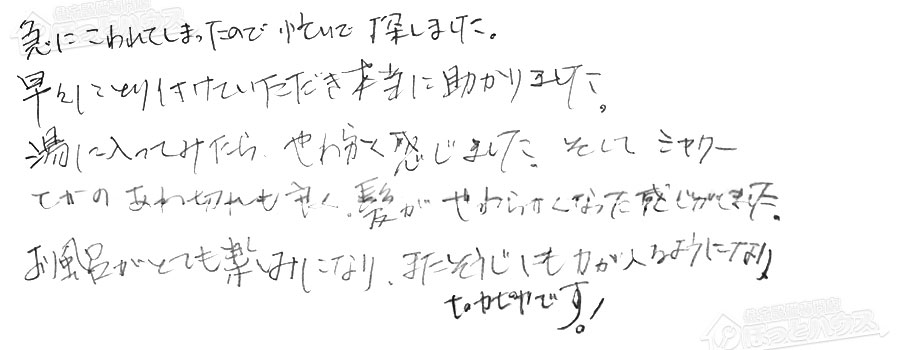 急にこわれてしまったので忙いで探しました。
早々にとり付けていただき本当に助かりました。
湯に入ってみたら、やわかく感じました。そして シャワー
でかの あわ切れも良く、髪がやわらかくなった感じがきました。
お風呂がとても楽しみになり、またそうじにも力が入るようになり
です!
ほっとハウス